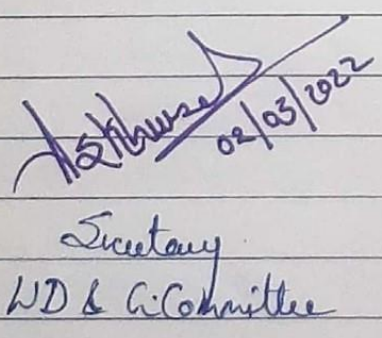 02/03/2022
Secretary
WD & G. Committee